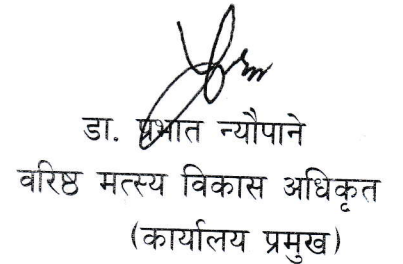 डा. प्रभात न्यौपाने
वरिष्ठ मत्स्य विकास अधिकृत
(कार्यालय प्रमुख)